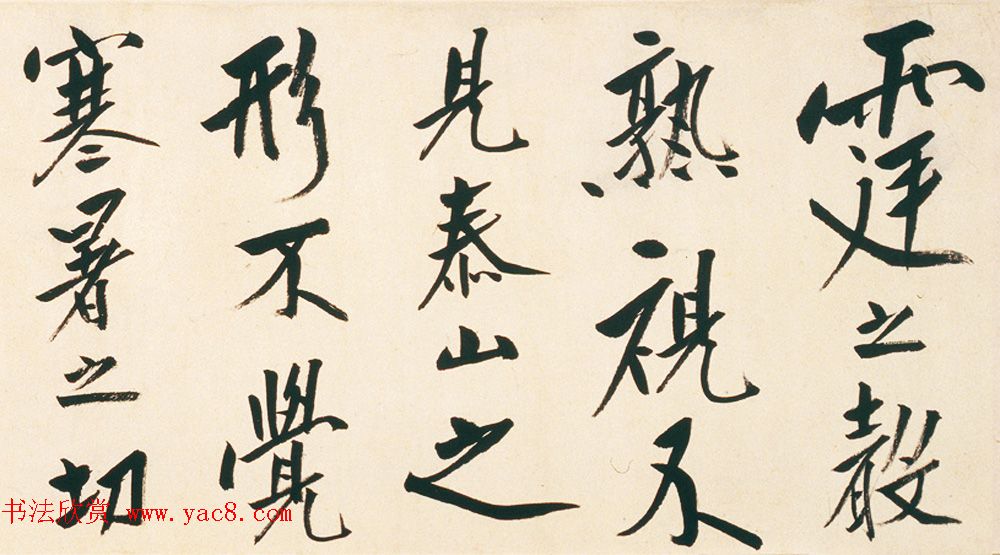 霆之聲
熟視不
見泰山之
形不覺
寒暑之切
书法欣赏 www.yac8.com